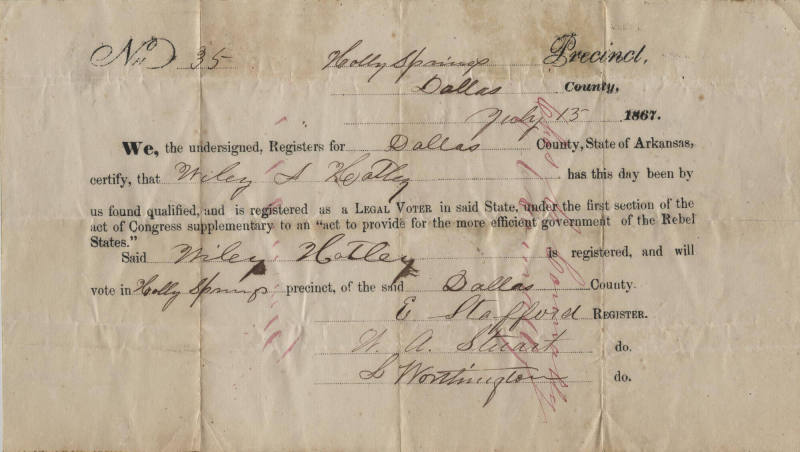 No 35 Holly Springs Precinct,
Dallas County,
July 15 1867.
We, the undersigned, Registers for Dallas County, State of Arkansas,
certify, that Wiley S Hotley has this day been by
us found qualified, and is registered as a LEGAL VOTER in said State, under the first section of the
act of Congress supplementary to an "act to provide for the more efficient government of the Rebel
States."
Said Wiley Hotley is registered, and will
vote in Holly Springs precinct, of the said Dallas County.
E Stafford REGISTER.
W. A. Stuart do.
L Worthington do.